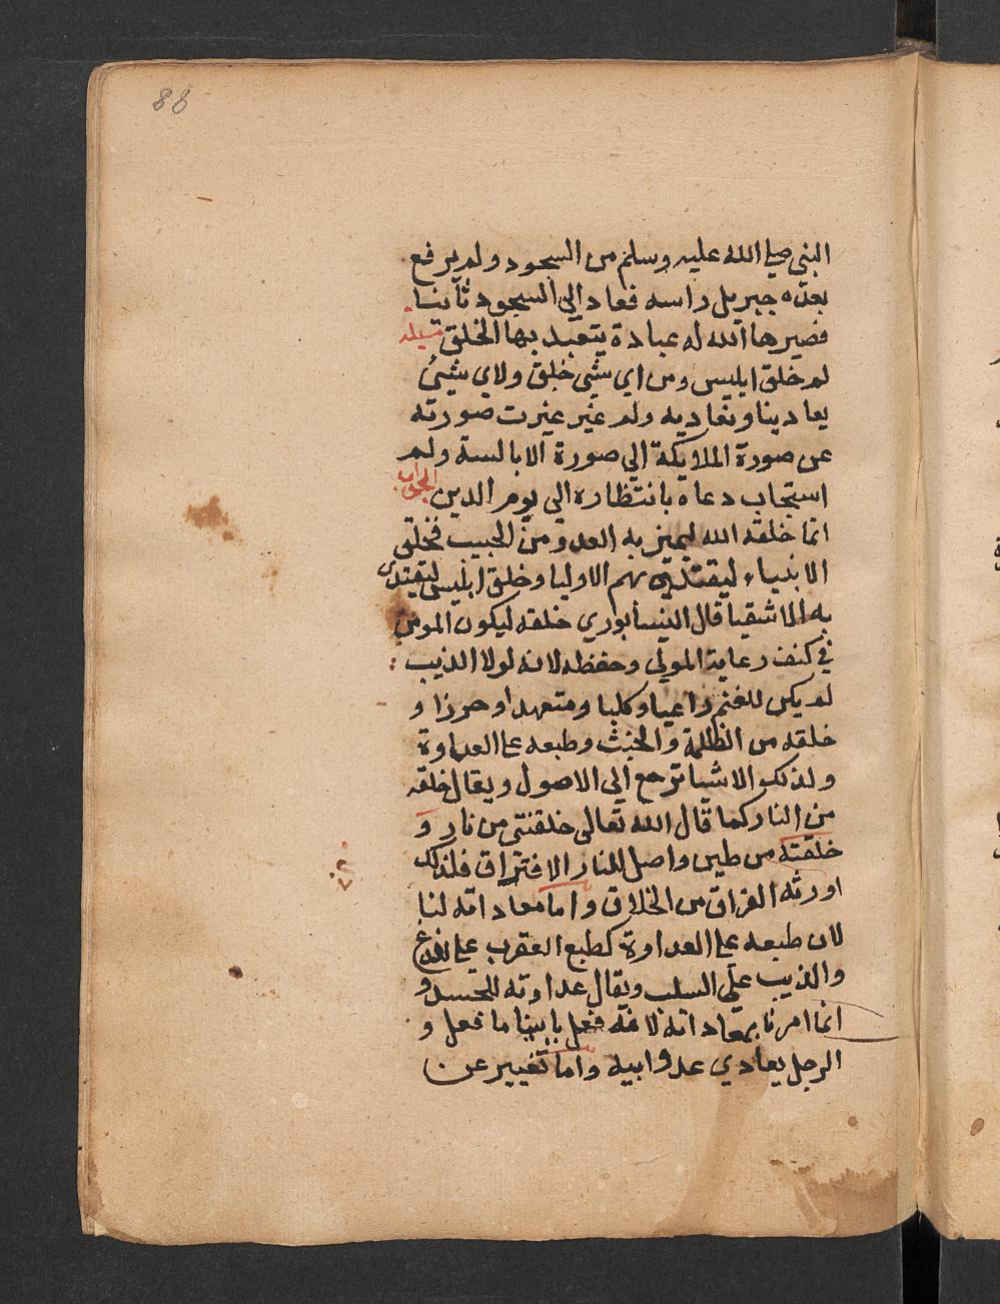 88
النبي صلي الله عليه وسلم من السجود ولم يرفع
بعده جبريل راسه فعاد الي السجود ثانيا
فصيرها الله له عبادة يتعبد بها الخلق مسيلة
لم خلق ابليس ومن اي شي خلق ولاي شيئ
يعادينا ونعاديه ولم غيرت صورته
عن صورة الملايكة الي صورة الابالسة ولم
استجاب دعاه بانتظاره الي يوم الدين الجواب
انما خلقه الله ليميز به العدو من الحبيب فخلق
الانبياء ليقتدي بهم الاوليا وخلق ابليس ليقتدي
به الاشقيا قال النيسابوري خلقه ليكون المومن
في كنف رعاية المولي وحفظه لانه لولا الذيب
لم يكن للغنم راعيا وكلبا ومتعهدا وحرزا و
خلقه من الظلمة والخبث وطبعه علي العداوة
ولذلك الاشيا ترجع الي الاصول ويقال خلقه
من النار كما قال الله تعالي خلقتني من نار و
خلقته من طين واصل للنار الافتراق فلذلك
اورثه الفراق من الخلاق واما معاداته لنا
لان طبعه علي العداوة كطبع العقرب علي لدغ
والذيب علي السلب ويقال عداوته للحسد و
انما امرنا بمعاداته لانه فعل بابينا ما فعل و
الرجل يعادي عدو ابيه واما تغيير عن